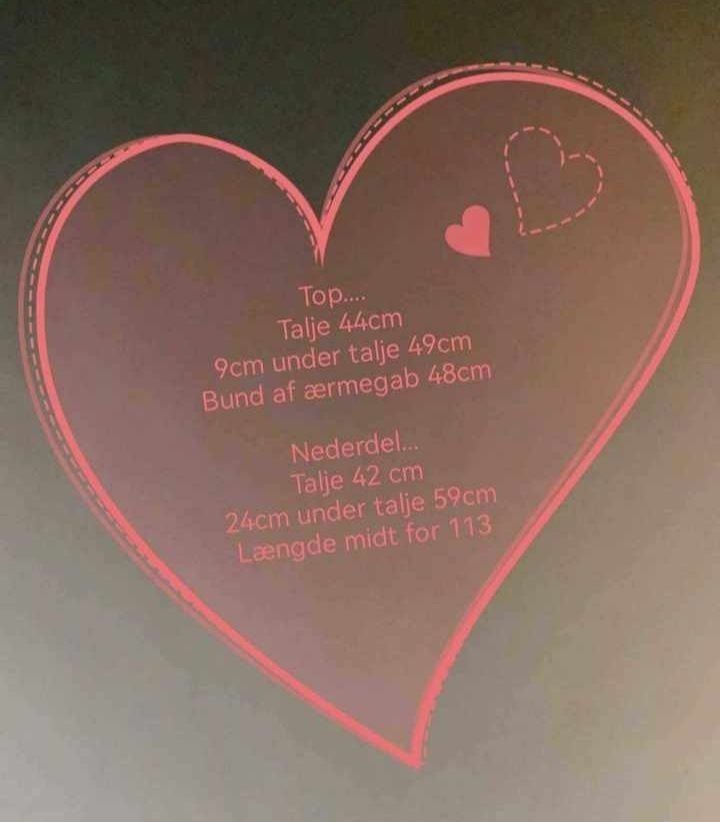 Top....
Talje 44cm
9cm under talje 49cm
Bund af ærmegab 48cm
Nederdel...
Talje 42 cm
24cm under talje 59cm
Længde midt for 113